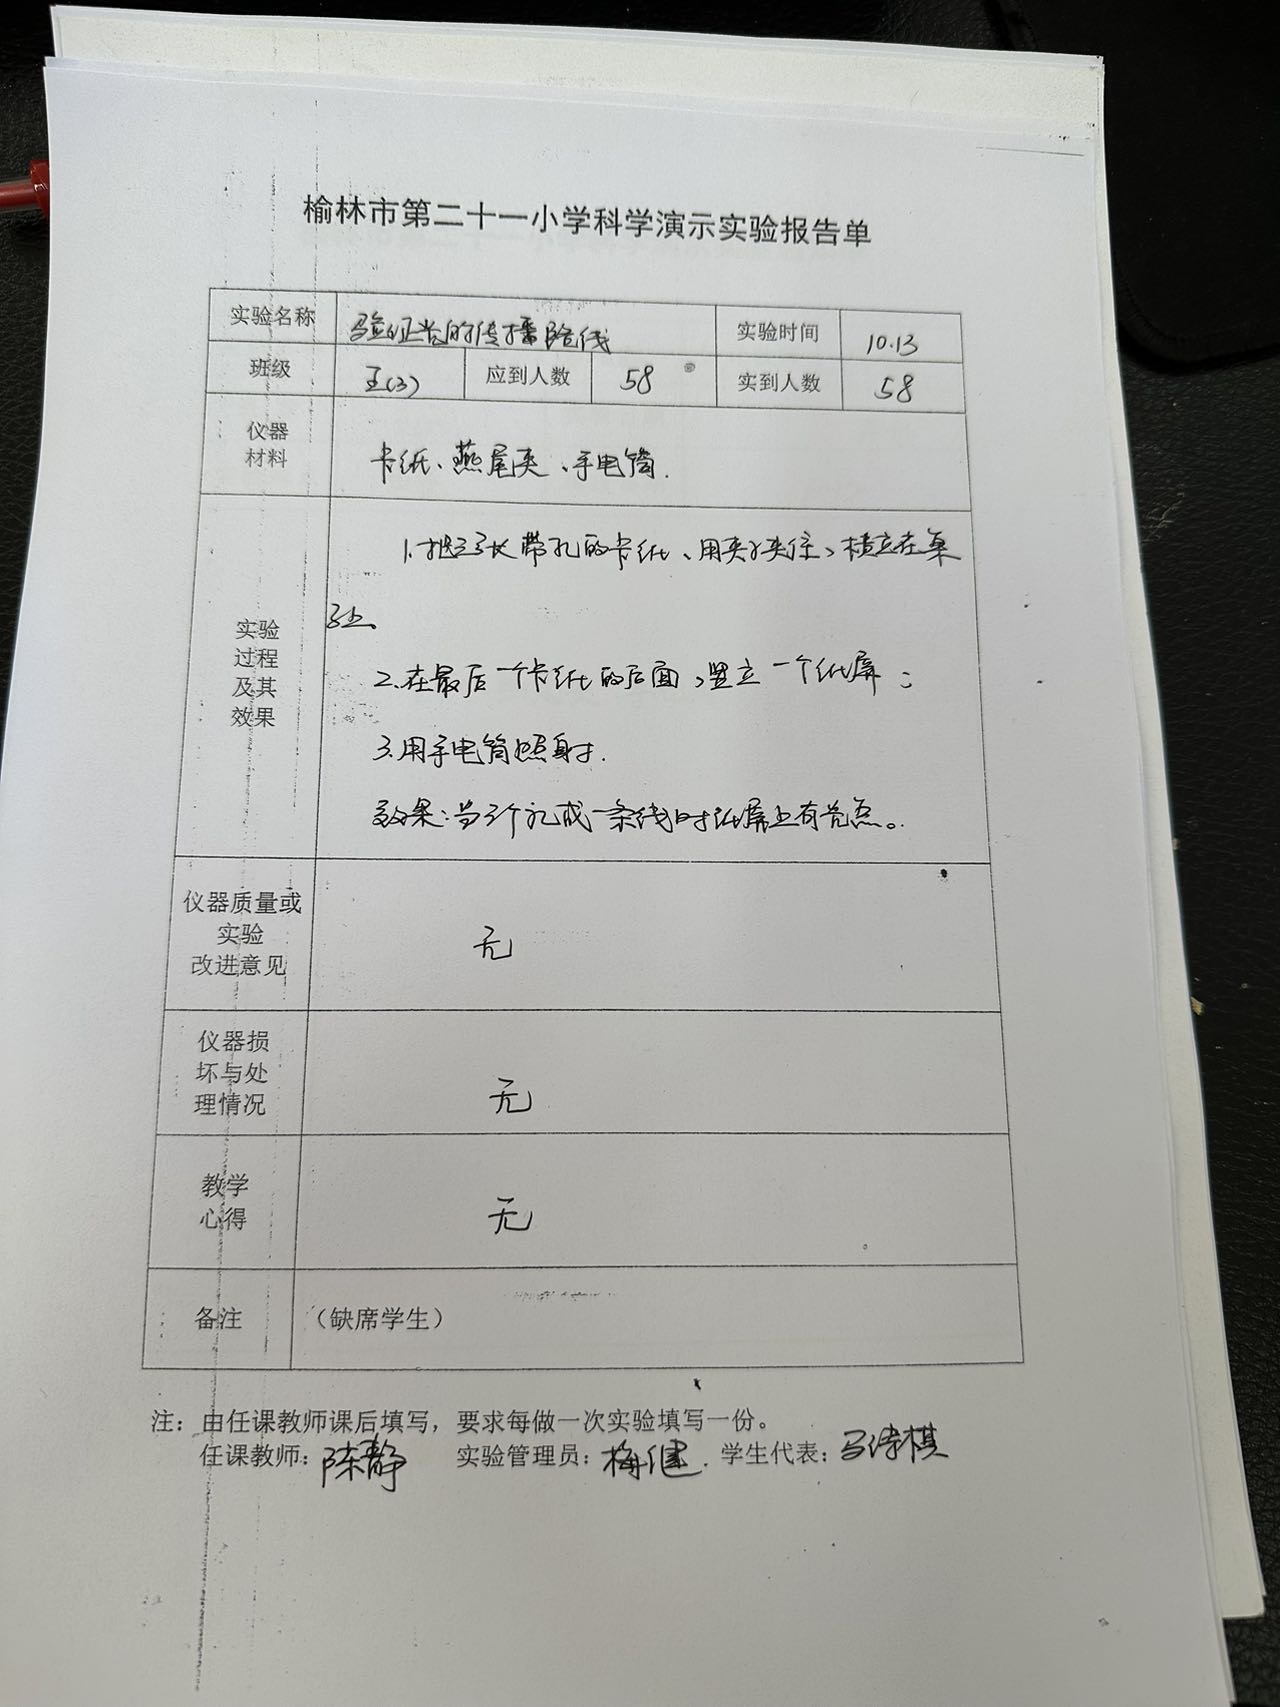 榆林市第二十一小学科学演示实验报告单
实验名称 验证光的传播路线 实验时间 10.13
班级 五(3) 应到人数 58 实到人数 58
仪器
材料
卡纸、燕尾夹、手电筒.
实验
过程
及其
效果
1.把3张带孔的卡纸、用夹子夹住、横立在桌
子上。
2.在最后一个卡纸的后面、竖立一个纸屏;
3.用手电筒照射.
效果:当3个孔成一条线时纸屏上有亮点。
仪器质量或
实验
改进意见
无
仪器损
坏与处
理情况
无
教学
心得
无
备注 (缺席学生)
注:由任课教师课后填写,要求每做一次实验填写一份。
任课教师:陈静 实验管理员:梅健. 学生代表:马诗棋